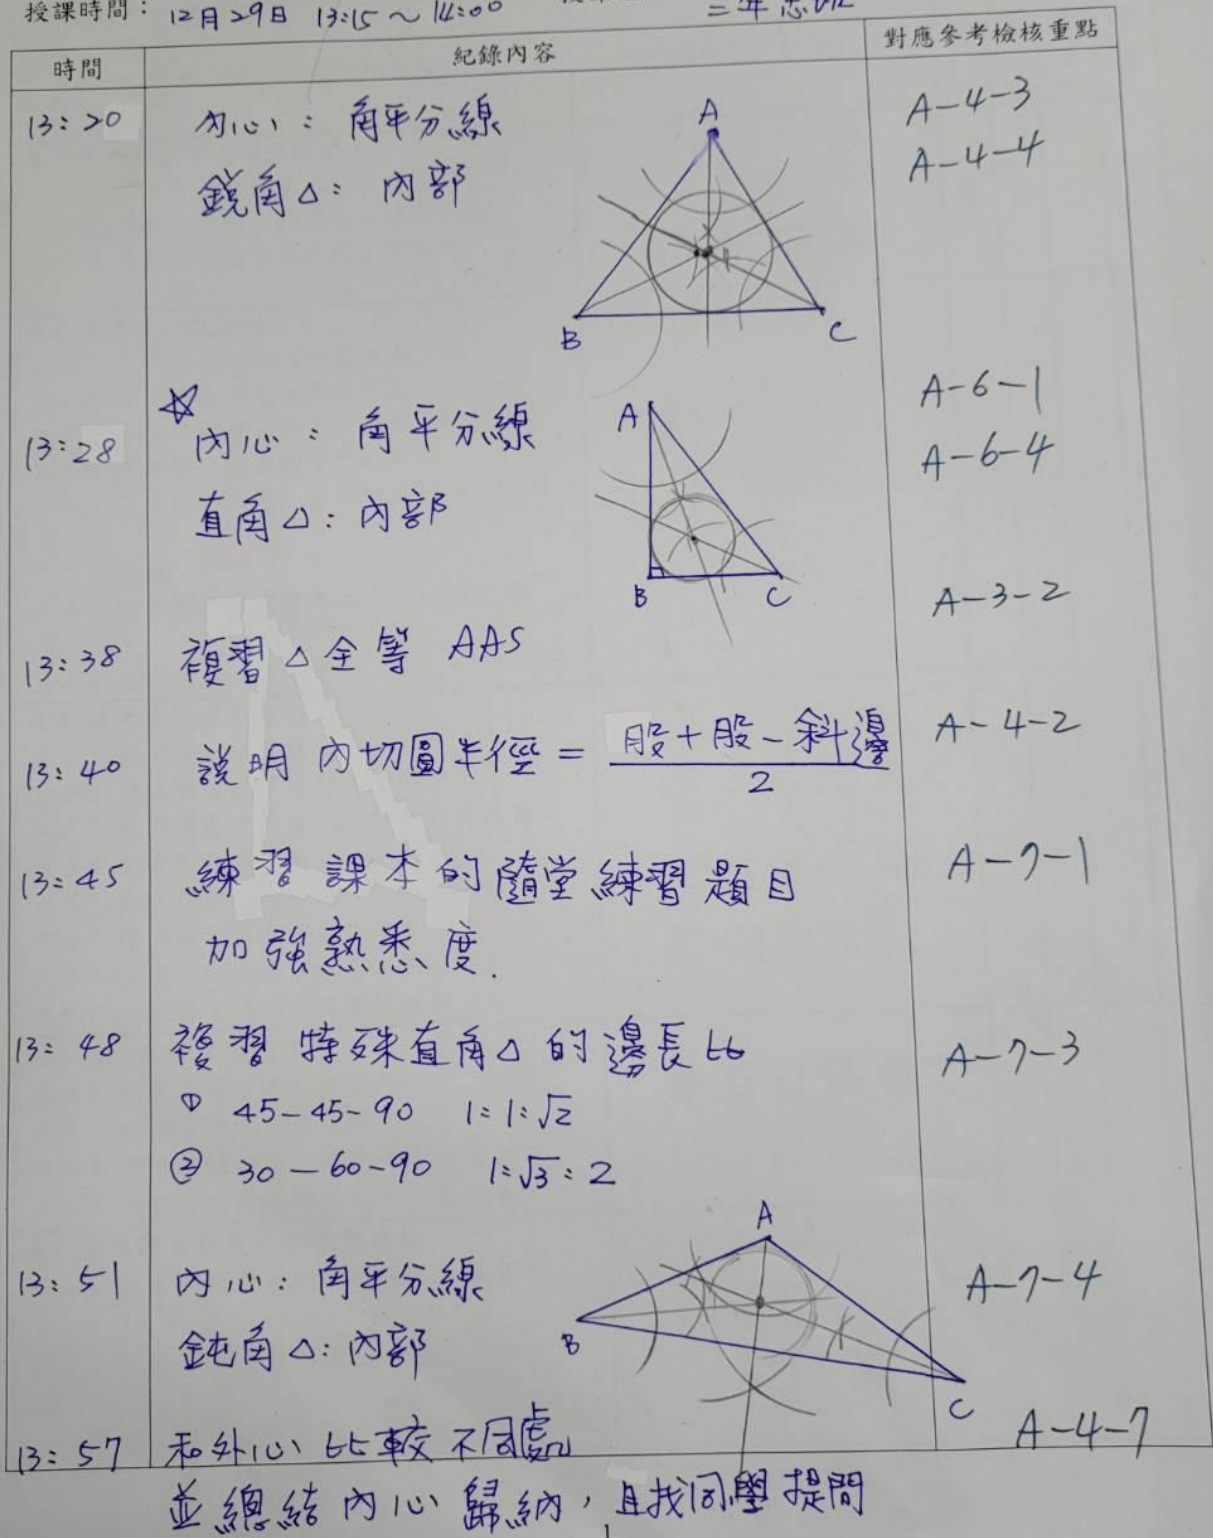 授課時間：12月29日 13:15～14:00 三年忠班
時間 紀錄內容 對應參考檢核重點
13:20 內心：角平分線 A-4-3
銳角△：內部 A-4-4
A
B C
13:28 ☆內心：角平分線 A-6-1
直角△：內部 A-6-4
A
B C
13:38 複習△全等 AAS A-3-2
13:40 說明 內切圓半徑 = (股+股-斜邊)/2 A-4-2
13:45 練習課本的隨堂練習題目 A-7-1
加強熟悉度.
13:48 複習 特殊直角△的邊長比 A-7-3
① 45-45-90 1:1:√2
② 30-60-90 1:√3:2
13:51 內心：角平分線 A-7-4
鈍角△：內部
A
B
C
13:57 和外心比較不同處 A-4-7
並總結內心歸納，且找同學提問
1